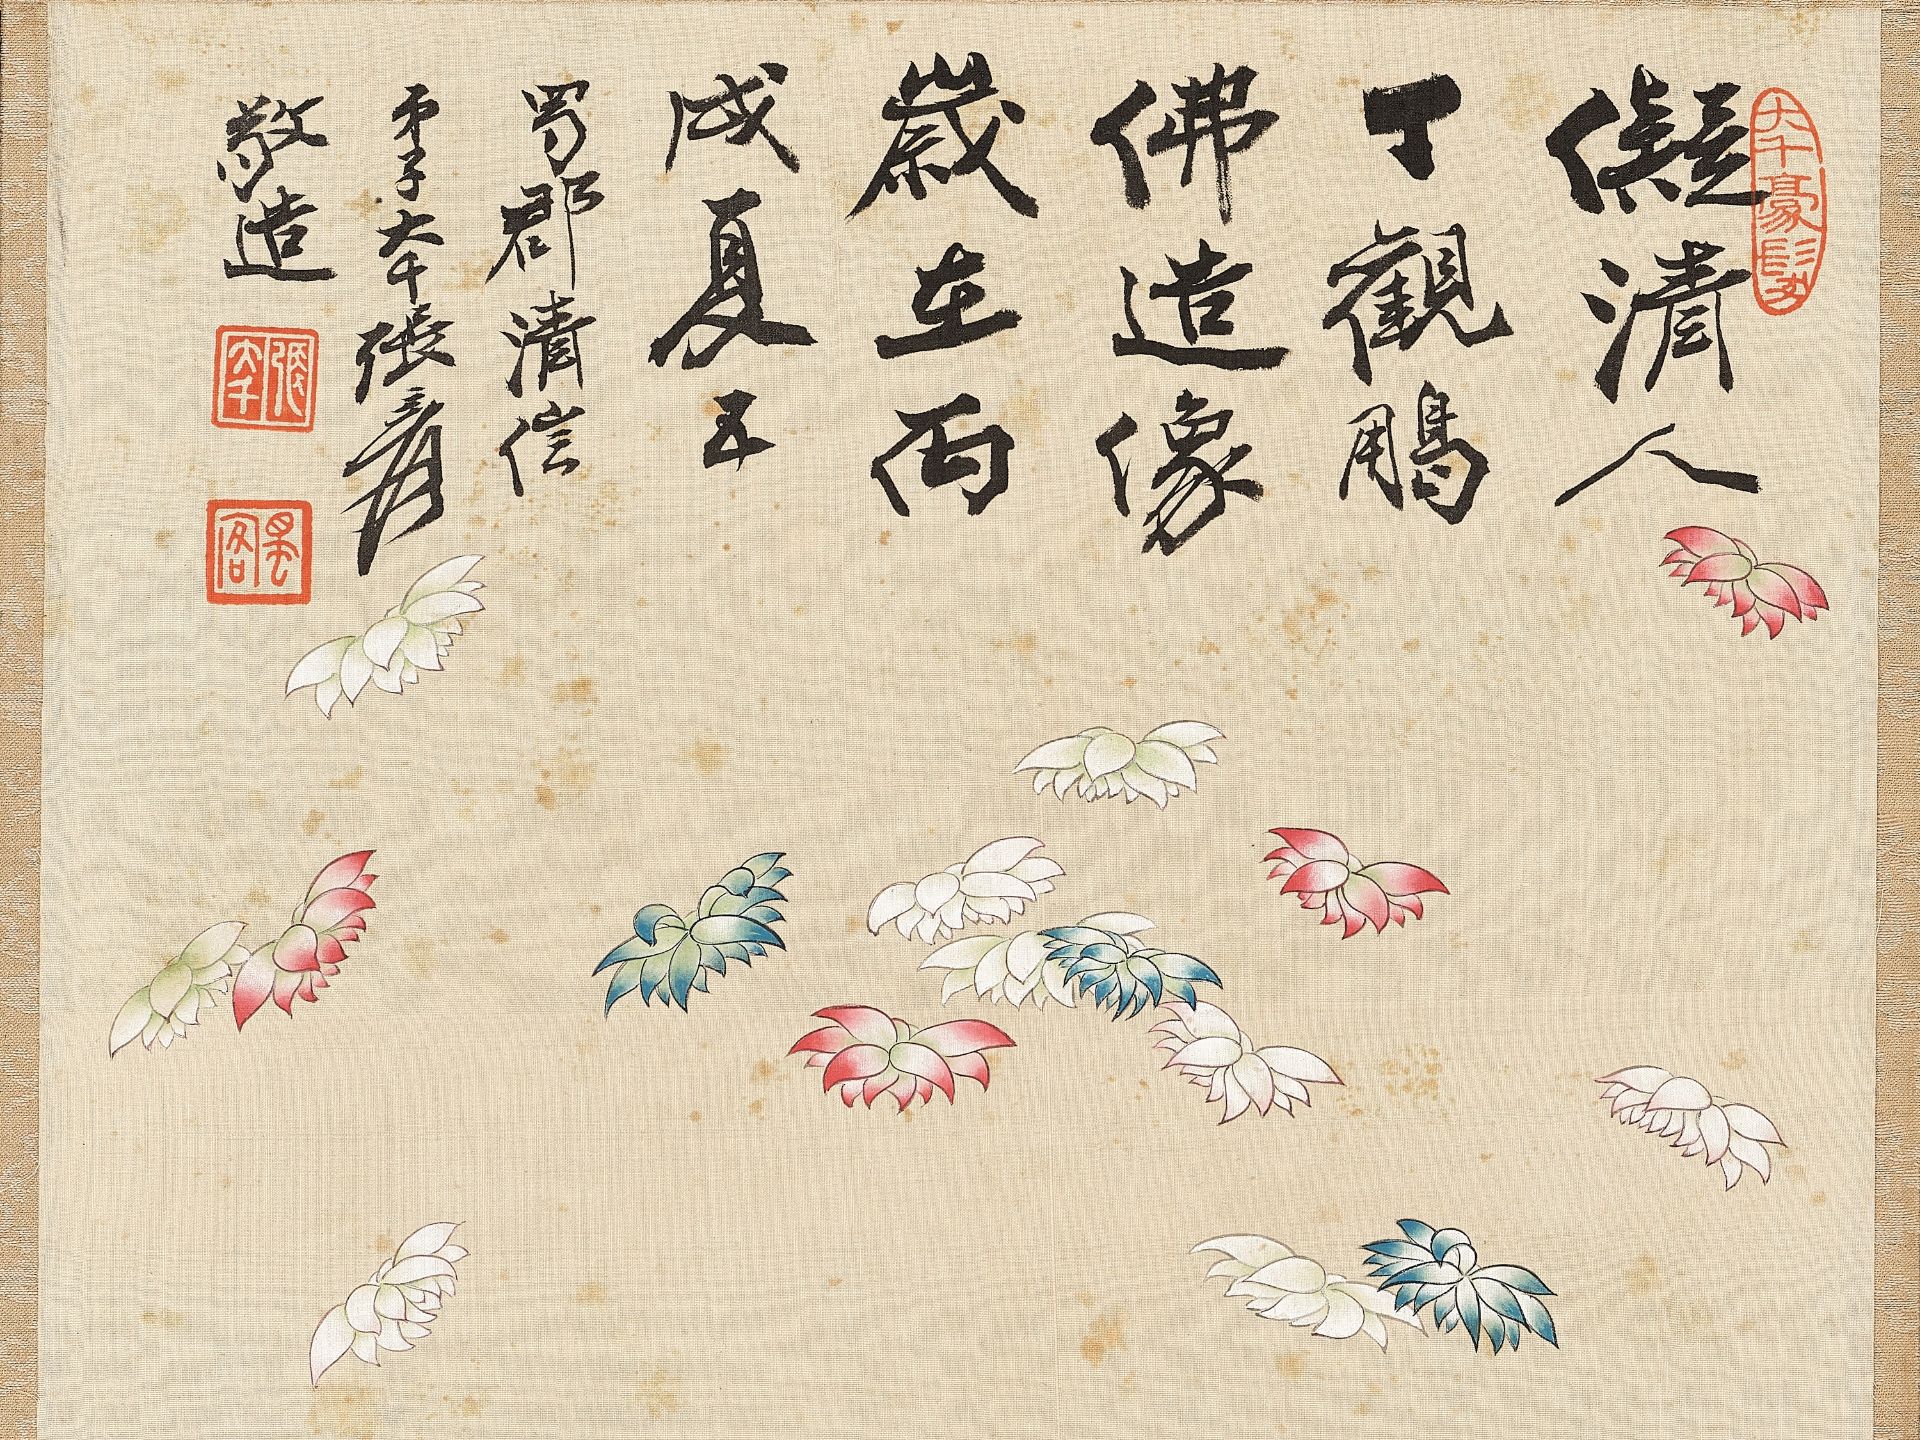 大千豪髮
儗清人
丁觀鵬
佛造像
歲在丙
戌夏五
蜀郡清信
弟子大千張爰
敬造
張大千
蜀客